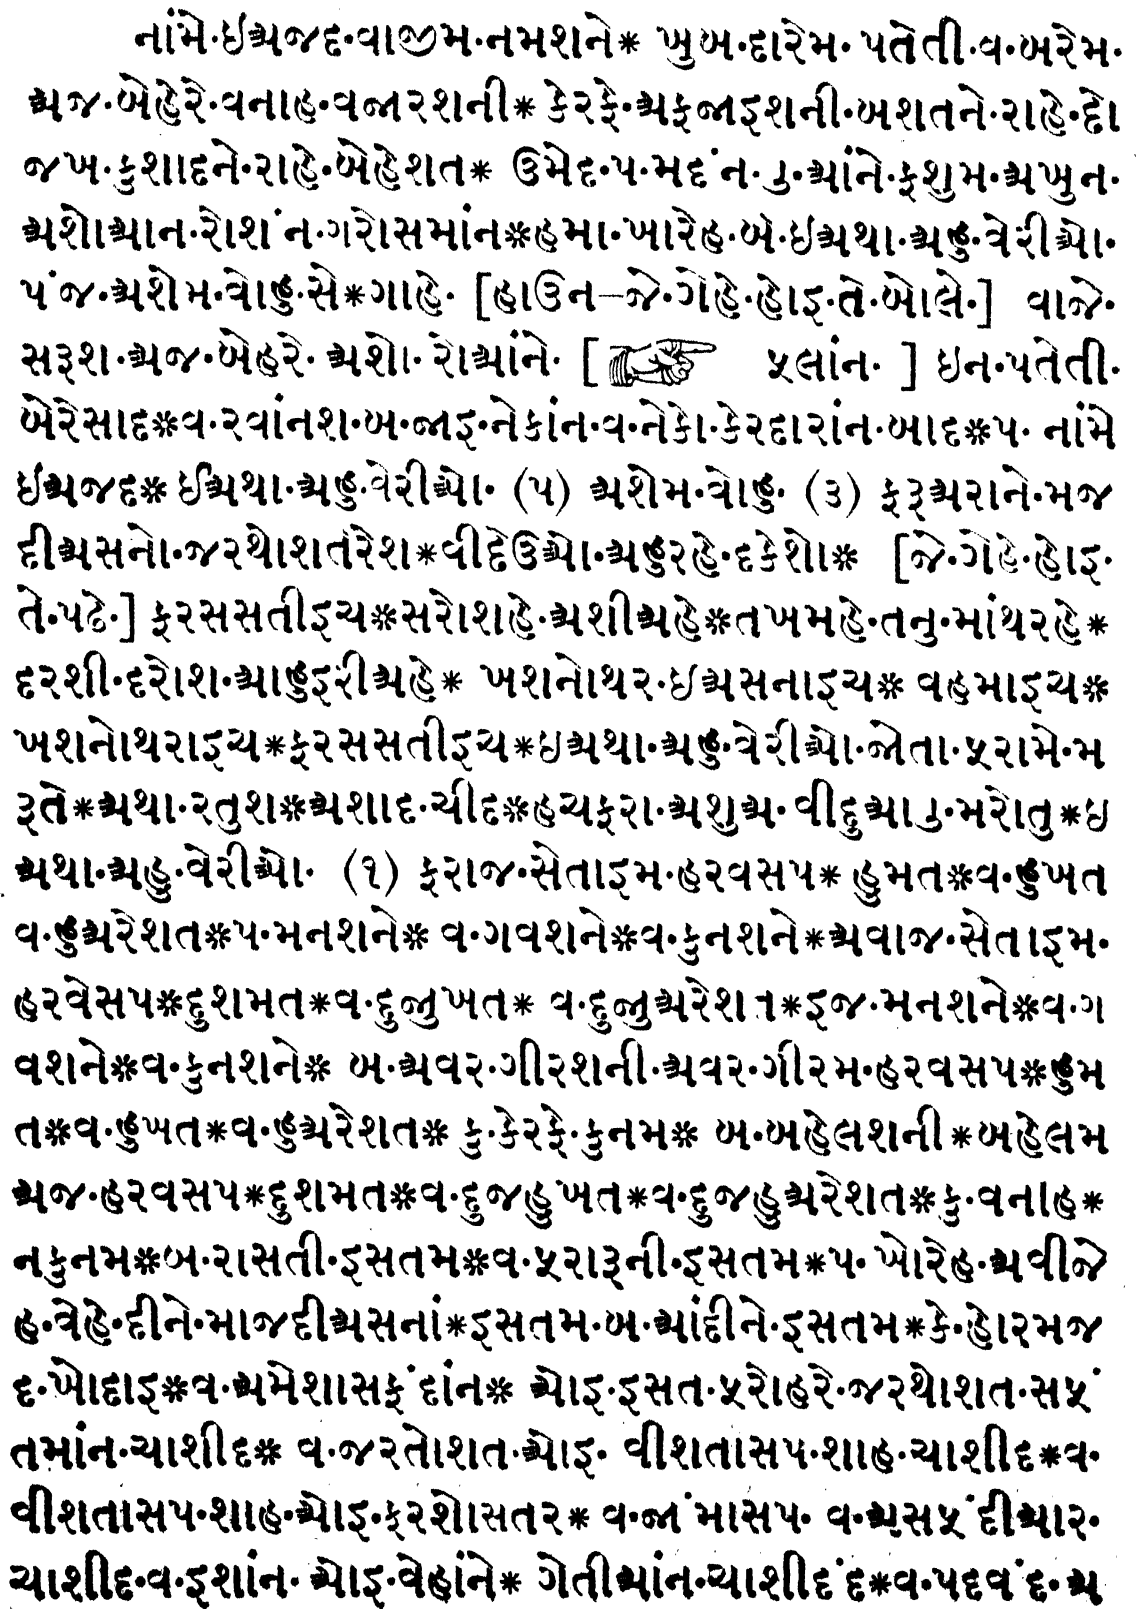 નાંમે·ઇઅજદ·વાજીમ·નમશને* ખુબ·દારેમ· પતેતી·વ·બરેમ·
અજ·બેહેરે·વનાહ·વજારશની* કેરફે·અફજાઇશની·બશતને·રાહે·દો
જખ·કુશાદને·રાહે·બેહેશત* ઉમેદ·પ·મદંન·ડુ·આંને·ફશુમ·અખુન·
અશોઆન·રોશંન·ગરોસમાંન*હમા·ખારેહ·બે·ઇઅથા·અહુ·વેરીઓ·
પંજ·અશેમ·વોહુ·સે*ગાહે· [હાઉન–જે·ગેહે·હોઇ·તે·બોલે·] વાજે·
સરૂશ·અજ·બેહરે· અશો· રોઆંને· [ ફલાંન· ] ઇન·પતેતી·
બેરેસાદ*વ·રવાંનશ·બ·જાઇ·નેકાંન·વ·નેકો·કેરદારાંન·બાદ*પ· નાંમે
ઇઅજદ* ઈઅથા·અહુ·વેરીઓ· (૫) અશેમ·વોહુ· (૩) ફરૂઅરાને·મજ
દીઅસનો·જરથોશતરેશ*વીદેઉઓ·અહુરહે·દકેશો* [જે·ગેહે·હોઇ·
તે·પઢે·] ફરસસતીઇચ*સરોશહે·અશીઅહે*તખમહે·તનુ·માંથરહે*
દરશી·દરોશ·આહુઇરીઅહે* ખશનોથર·ઇઅસનાઇચ* વહમાઇચ*
ખશનોથરાઇચ*ફરસસતીઇચ*ઇઅથા·અહુ·વેરીઓ·જોતા·ફરામે·મ
રૂતે*અથા·રતુશ*અશાદ·ચીદ*હચફરા·અશુઅ· વીદુઆડુ·મરોતુ*ઇ
અથા·અહુ·વેરીઓ· (૧) ફરાજ·સેતાઇમ·હરવસપ* હુમત*વ·હુખત
વ·હુઅરેશત*પ·મનશને* વ·ગવશને*વ·કુનશને*અવાજ·સેતાઇમ·
હરવેસપ*દુશમત*વ·દુજુખત* વ·દુજુઅરેશત*ઇજ·મનશને*વ·ગ
વશને*વ·કુનશને* બ·અવર·ગીરશની·અવર·ગીરમ·હરવસપ*હુમ
ત*વ·હુખત*વ·હુઅરેશત* કુ·કેરફે·કુનમ* બ·બહેલશની*બહેલમ
અજ·હરવસપ*દુશમત*વ·દુજહુખત*વ·દુજહુઅરેશત*કુ·વનાહ*
નકુનમ*બ·રાસતી·ઇસતમ*વ·ફરારૂની·ઇસતમ*પ· ખોરેહ·અવીજે
હ·વેહે·દીને·માજદીઅસનાં*ઇસતમ·બ·આંદીને·ઇસતમ*કે·હોરમજ
દ·ખોદાઇ*વ·અમેશાસફંદાંન* ઓઇ·ઇસત·ફરોહરે·જરથોશત·સફં
તમાંન·ચાશીદ* વ·જરતોશત·ઓઇ· વીશતાસપ·શાહ·ચાશીદ*વ·
વીશતાસપ·શાહ·ઓઇ·ફરશોસતર* વ·જાંમાસપ· વ·અસફંદીઆર·
ચાશીદ·વ·ઇશાંન· ઓઇ·વેહાંને* ગેતીઆંન·ચાશીદંદ*વ·પદવંદ·અ